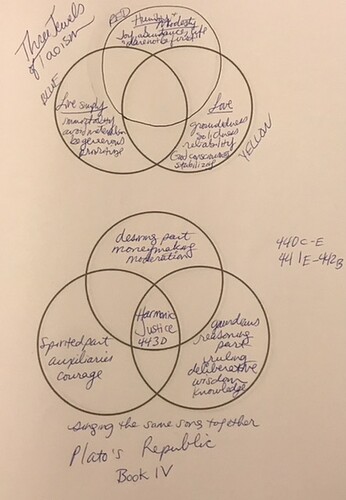 Three Jewels
of Taoism
RED
Humility
Modesty
joy, abundance, life
dare not be first
BLUE
Live simply
immortality
avoid materialism
be generous
primitive
Love
groundedness
solidness
reliability
God consciousness
stabilizing
YELLOW
desiring part
moneymaking
moderation
440c-E
441E-442B
Harmonic
Justice
443D
Spirited part
auxiliaries
courage
guardians
reasoning
part
ruling
deliberative
wisdom
knowledge
singing the same song together
Plato's Republic
Book IV